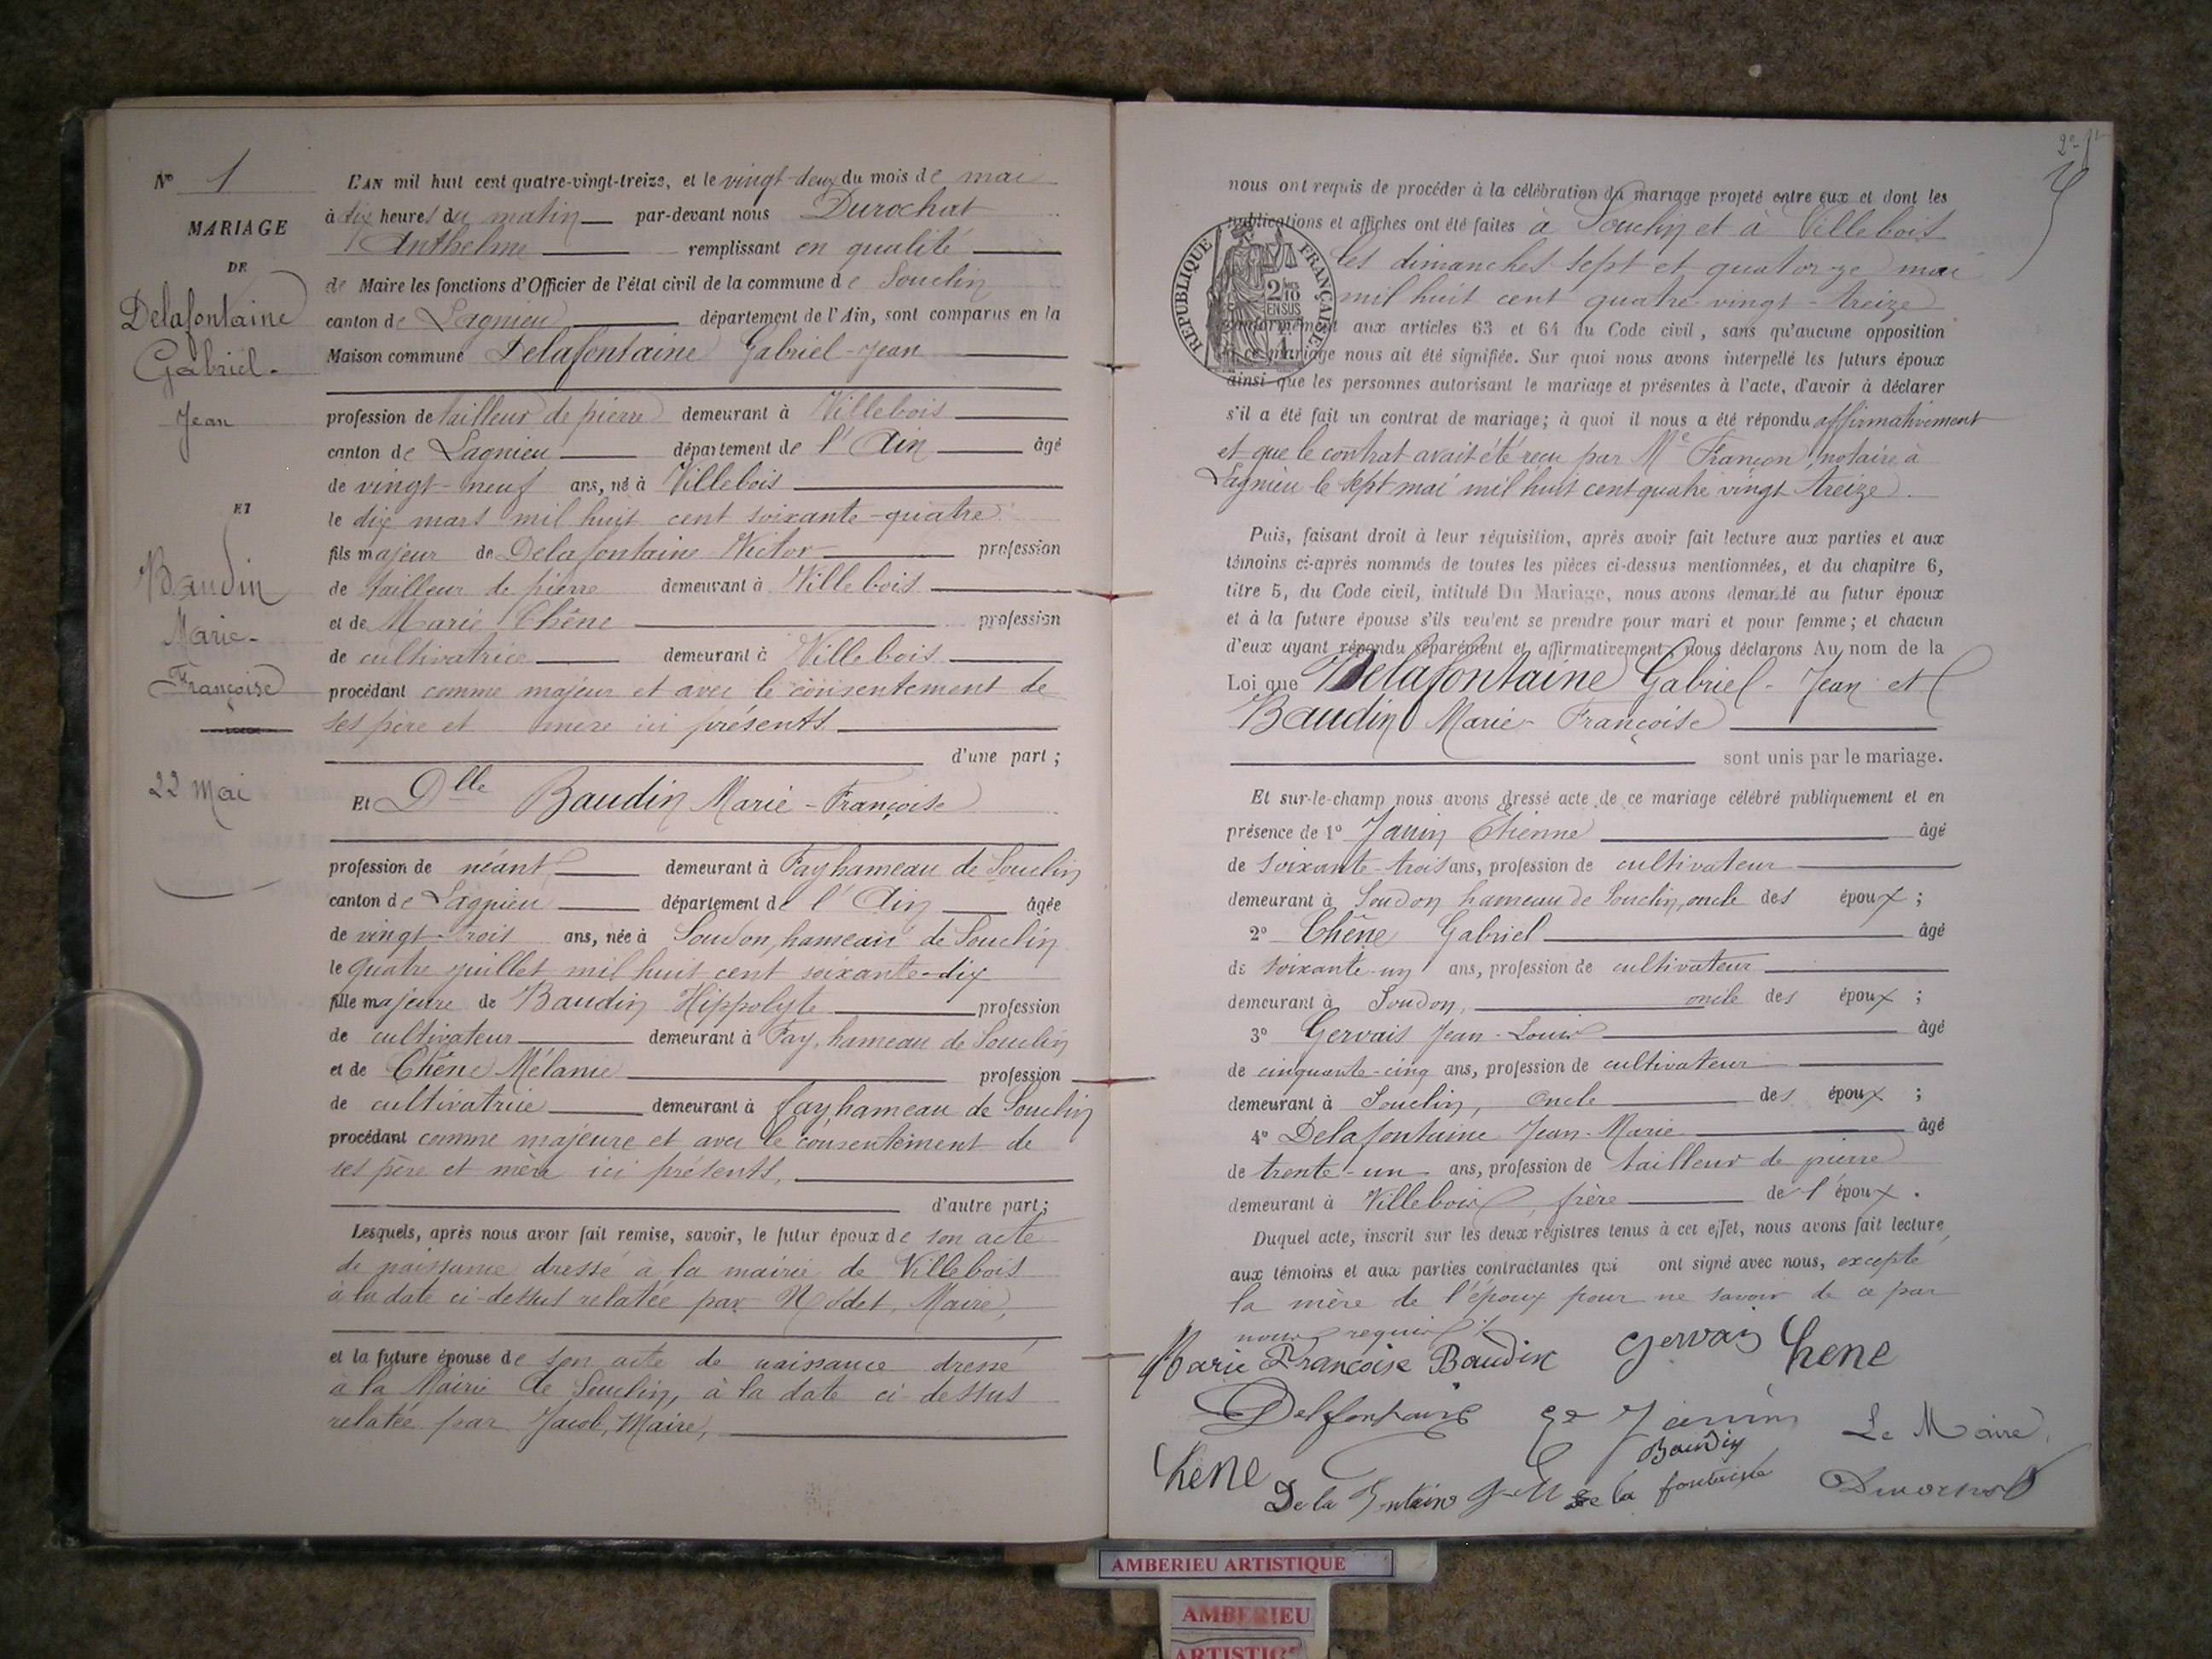 Nº 1
MARIAGE
DE
Delafontaine
Gabriel-
Jean
ET
Baudin
Marie-
Françoise
22 Mai
L'AN mil huit cent quatre-vingt-treize, et le vingt-deux du mois de mai
à dix heures du matin par-devant nous Durochat
Anthelme remplissant en qualité
de Maire les fonctions d'Officier de l'état civil de la commune de Souclin
canton de Lagnieu département de l'Ain, sont comparus en la
Maison commune Delafontaine Gabriel-Jean
profession de tailleur de pierre demeurant à Villebois
canton de Lagnieu département de l'Ain âgé
de vingt-neuf ans, né à Villebois
le dix mars mil huit cent soixante-quatre
fils majeur de Delafontaine Victor profession
de tailleur de pierre demeurant à Villebois
et de Marie Chêne profession
de cultivatrice demeurant à Villebois
procédant comme majeur et avec le consentement de
ses père et mère ici présents
d'une part ;
Et Dlle Baudin Marie-Françoise
profession de néant demeurant à Fay hameau de Souclin
canton de Lagnieu département de l'Ain âgée
de vingt-trois ans, née à Soudon, hameau de Souclin
le quatre juillet mil huit cent soixante-dix
fille majeure de Baudin Hippolyte profession
de cultivateur demeurant à Fay, hameau de Souclin
et de Chêne Mélanie profession
de cultivatrice demeurant à fay, hameau de Souclin
procédant comme majeure et avec le consentement de
ses père et mère ici présents,
d'autre part ;
Lesquels, après nous avoir fait remise, savoir, le futur époux de son acte
de naissance dressé à la mairie de Villebois
à la date ci-dessus relatée par Maire,
et la future épouse de son acte de naissance dressé
à la Mairie de Souclin, à la date ci-dessus
relatée par Jacob, Maire,
nous ont requis de procéder à la célébration du mariage projeté entre eux et dont les
publications et affiches ont été faites à Souclin et à Villebois
les dimanches sept et quatorze mai
mil huit cent quatre-vingt-treize
conformément aux articles 63 et 64 du Code civil, sans qu'aucune opposition
à ce mariage nous ait été signifiée. Sur quoi nous avons interpellé les futurs époux
ainsi que les personnes autorisant le mariage et présentes à l'acte, d'avoir à déclarer
s'il a été fait un contrat de mariage ; à quoi il nous a été répondu affirmativement
et que le contrat avait été reçu par Me Françon, notaire à
Lagnieu le sept mai mil huit cent quatre vingt treize.
RÉPUBLIQUE FRANÇAISE
2/10 EN SUS
Puis, faisant droit à leur réquisition, après avoir fait lecture aux parties et aux
témoins ci-après nommés de toutes les pièces ci-dessus mentionnées, et du chapitre 6,
titre 5, du Code civil, intitulé Du Mariage, nous avons demandé au futur époux
et à la future épouse s'ils veulent se prendre pour mari et pour femme ; et chacun
d'eux ayant répondu séparément et affirmativement, nous déclarons Au nom de la
Loi que Delafontaine Gabriel-Jean et
Baudin Marie-Françoise
sont unis par le mariage.
Et sur-le-champ nous avons dressé acte de ce mariage célébré publiquement et en
présence de 1º Janin Etienne âgé
de soixante-trois ans, profession de cultivateur
demeurant à Soudon hameau de Souclin, oncle des époux ;
2º Chêne Gabriel âgé
de soixante-un ans, profession de cultivateur
demeurant à Soudon, oncle des époux ;
3º Gervais Jean-Louis âgé
de cinquante-cinq ans, profession de cultivateur
demeurant à Souclin, oncle des époux ;
4º Delafontaine Jean-Marie âgé
de trente-un ans, profession de tailleur de pierre
demeurant à Villebois, frère de l'époux.
Duquel acte, inscrit sur les deux registres tenus à cet effet, nous avons fait lecture,
aux témoins et aux parties contractantes qui ont signé avec nous, excepté
la mère de l'époux pour ne savoir de ce par
nous requise
Marie Françoise Baudin Gervais Chene
Delafontaine Janin
Baudin
Le Maire,
Chene De la Fontaine J-M De la fontaine Durochat
AMBERIEU ARTISTIQUE
AMBERIEU
ARTISTIQUE